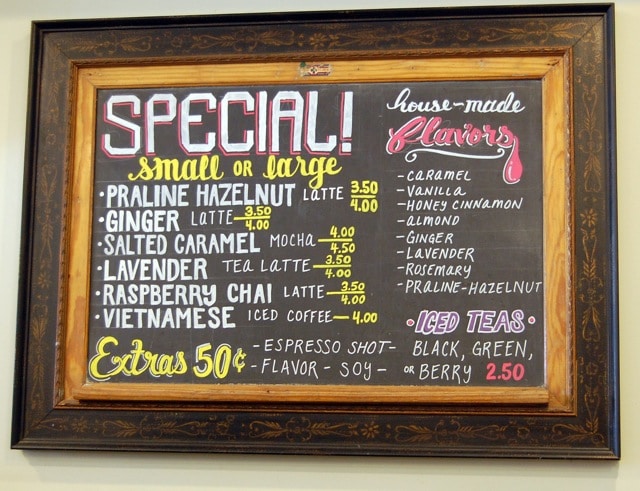 SPECIAL!
small OR large
·PRALINE HAZELNUT LATTE 3.50
4.00
·GINGER LATTE 3.50
4.00
·SALTED CARAMEL MOCHA 4.00
4.50
·LAVENDER TEA LATTE 3.50
4.00
·RASPBERRY CHAI LATTE 3.50
4.00
·VIETNAMESE ICED COFFEE—4.00
Extras 50¢
-ESPRESSO SHOT-
-FLAVOR - SOY-
house-made
flavors
-CARAMEL
-VANILLA
-HONEY CINNAMON
-ALMOND
-GINGER
-LAVENDER
-ROSEMARY
-PRALINE-HAZELNUT
·ICED TEAS·
BLACK, GREEN,
OR BERRY 2.50